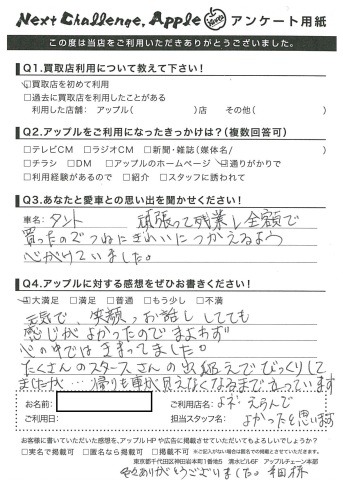 Next Challenge, Apple アンケート用紙
この度は当店をご利用いただきありがとうございました。
Q1.買取店利用について教えて下さい!
☑買取店を初めて利用
□過去に買取店を利用したことがある
利用した店舗: アップル( )店 その他( )
Q2.アップルをご利用になったきっかけは?(複数回答可)
□テレビCM □ラジオCM □新聞・雑誌(媒体名/ )
□チラシ □DM □アップルのホームページ ☑通りがかりで
□利用経験があるので □紹介 □スタッフに誘われて
Q3.あなたと愛車との思い出を聞かせください!
車名: タント 頑張って残業し全額で
買ったのでつねにきれいにつかえるよう
心がけていました。
Q4.アップルに対する感想をぜひお書きください!
☑大満足 □満足 □普通 □もう少し □不満
元気で、笑顔っお話ししてても
感じがよかったのでまよわず
心の中ではきまってました。
たくさんのスタースさんの出迎えでびっくりして
ましたが…帰りも車が見えなくなるまで
お名前: ご利用店名: よネ えらんで
ご利用日: 担当スタッフ名: よかったと思います
お客様に書いていただいた感想を、アップルHPや広告に掲載させていただいてもよろしいでしょうか?
□実名で掲載可 □匿名なら掲載可 □掲載不可 ※ご記入がない場合は匿名での掲載とさせていただきます。
東京都千代田区神田岩本町1番地5 清水ビル6F アップルチェーン本部
ありがとうございました。 和田様